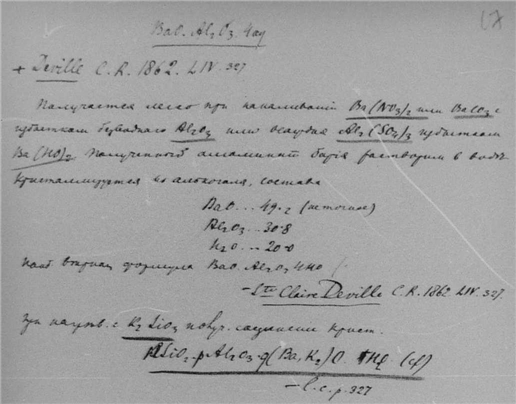 17
BaO. Al₂O₃. 4 aq
+ Deville C. R. 1862. LIV. 327
Получается легко при накаливании Ba(NO₃)₂ или BaCO₃ с
избытком безводного Al₂O₃ или осаждая Al₂(SO₄)₃ избытком
Ba(HO)₂ Полученный алюминат бария растворим в воде
кристаллизуется из алкоголя, состава
BaO ... 49.2 (неточно)
Al₂O₃ .. 30.8
H₂O ... 20.0
формула BaO. Al₂O₃ 4HO
– Ste Claire Deville C. R. 1862 LIV. 327.
при нагрев. с K₂SiO₃ получ. соединение крист.
SiO₂. pAl₂O₃ q(Ba, K₂)O
– l. c. p. 327